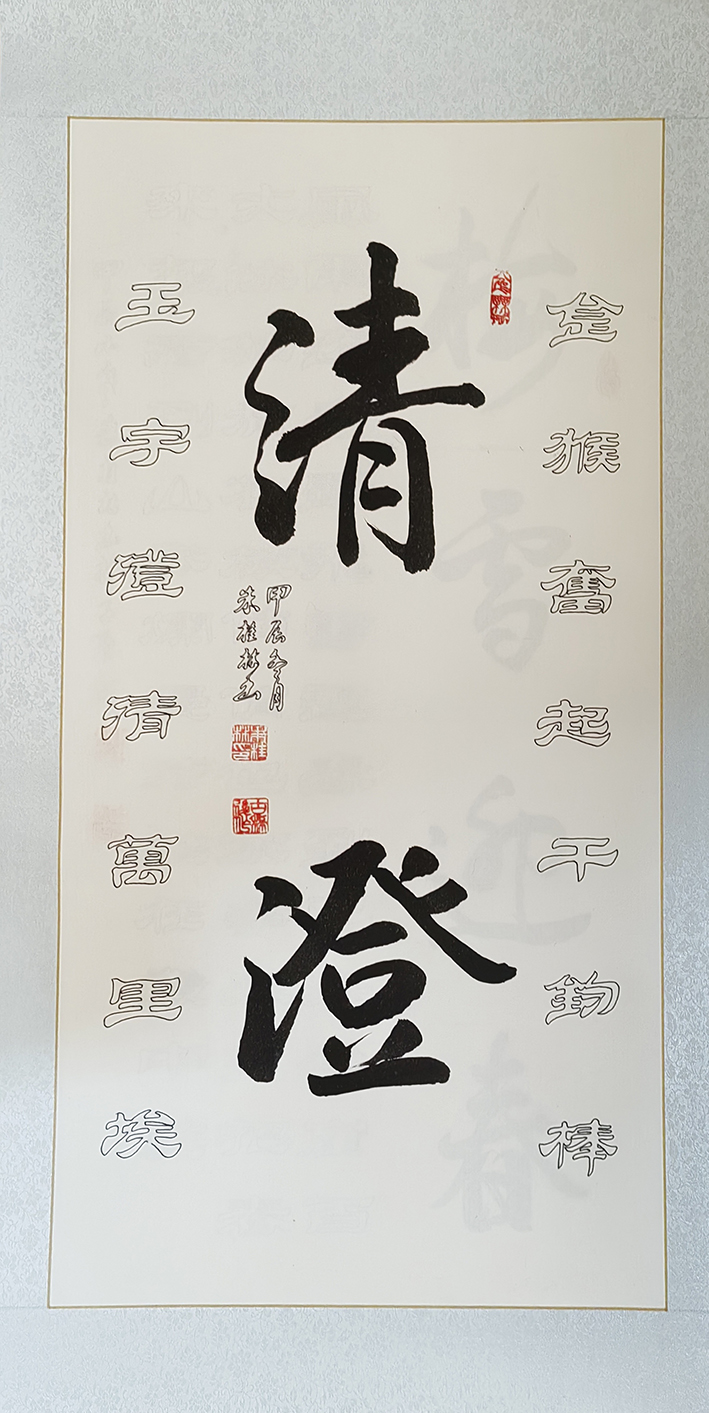 金猴奮起千鈞棒
清澄
甲辰冬月
朱桂林书
朱桂林印
玉宇澄清萬里埃